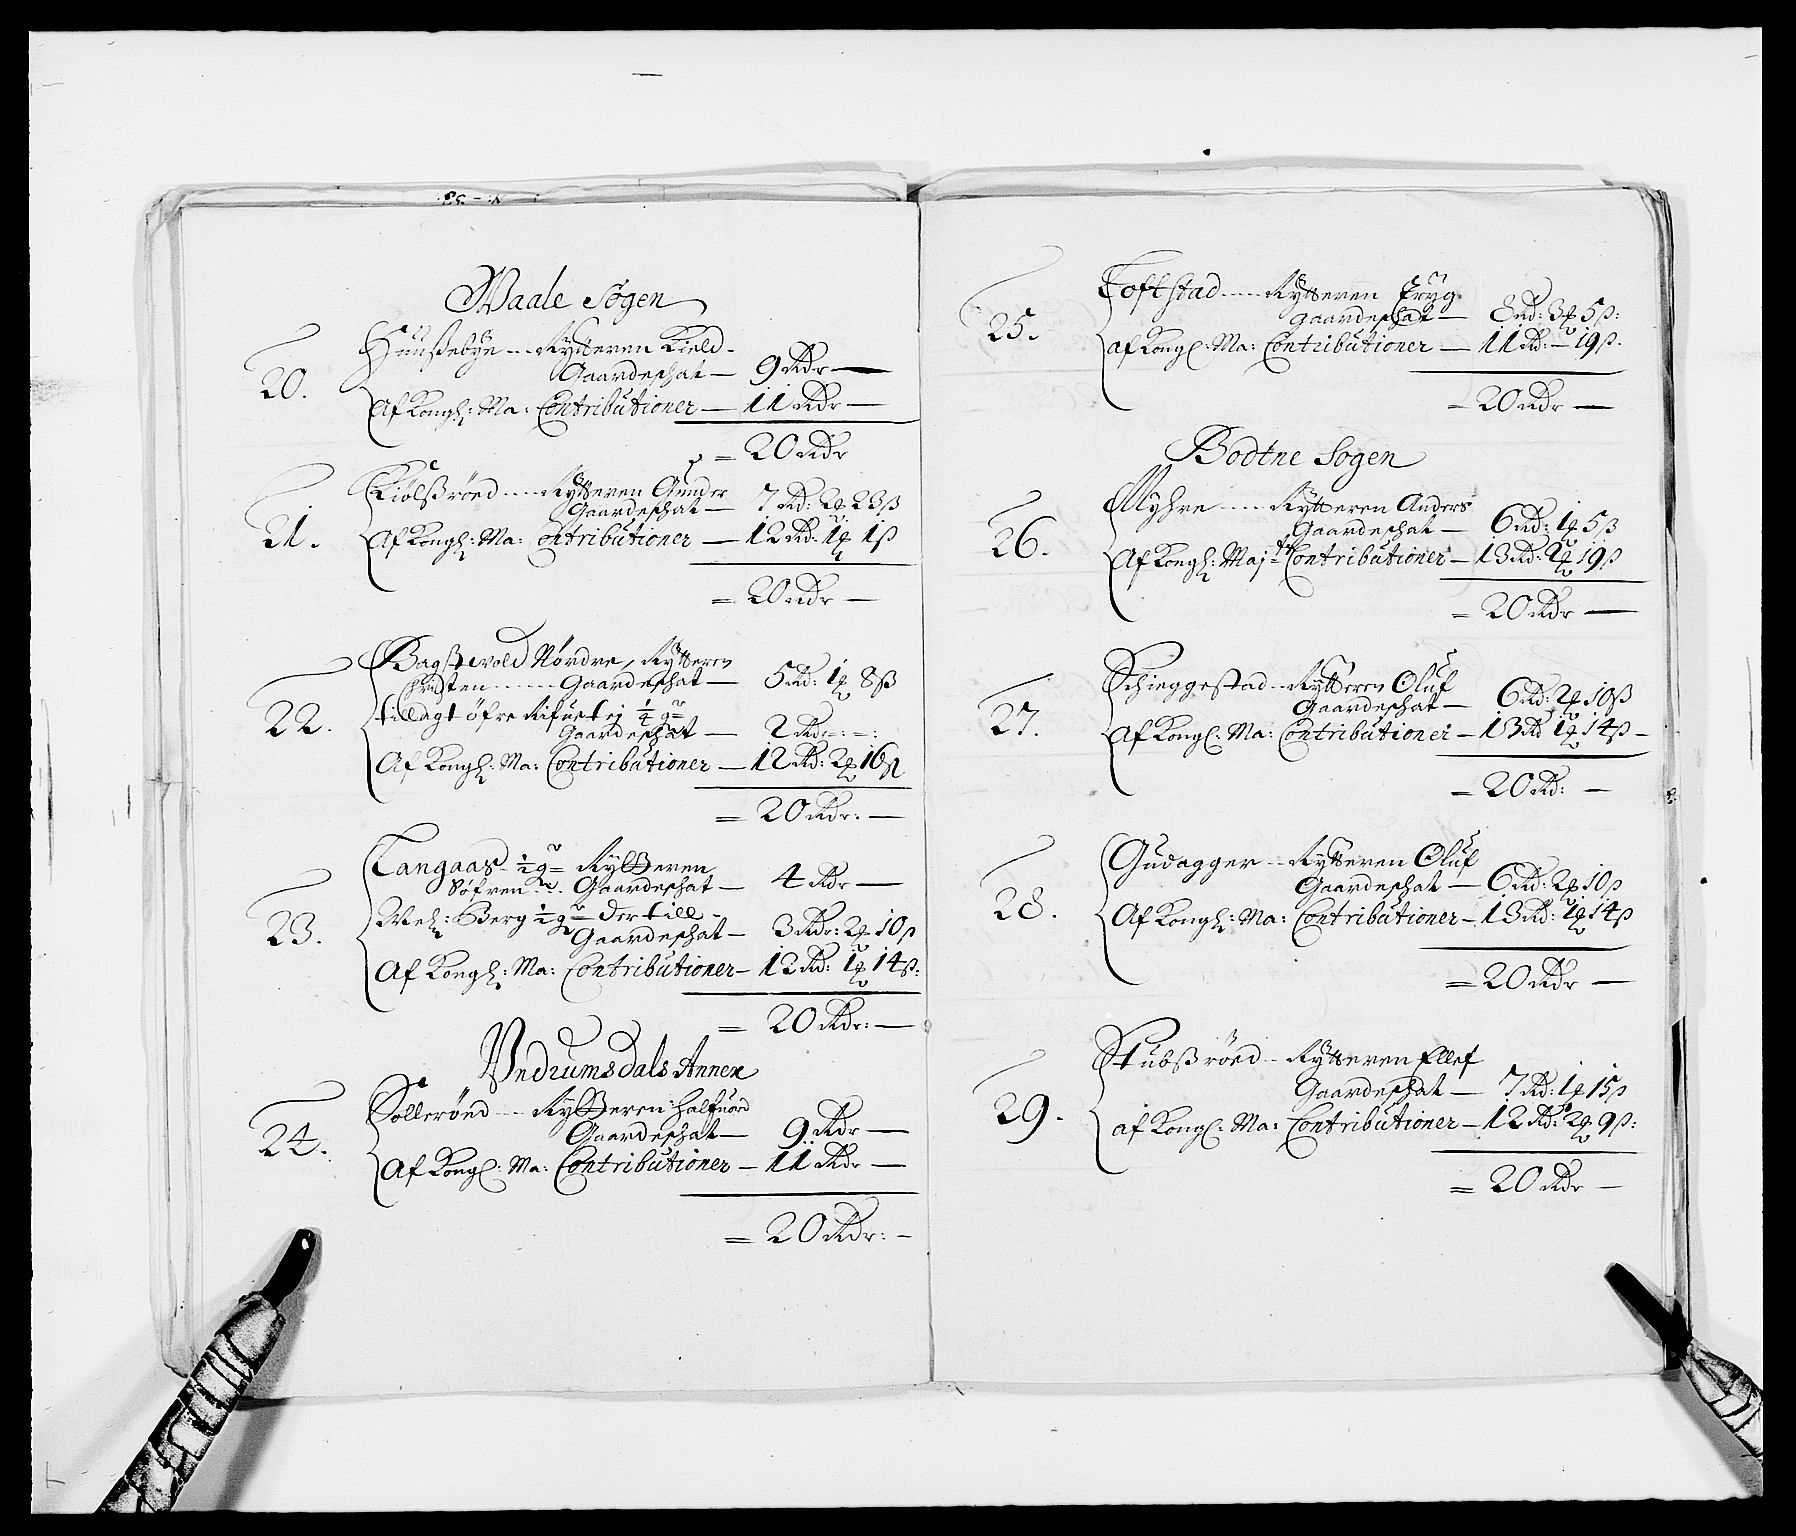 Waale Sogen
20. Huusebye --- Rytteren Kield -
Gaardeschat — 9 Rdr —
Af Kongl: Ma: Contributioner — 11 Rdr —
= 20 Rdr
21. Kiølsrøed ---- Rytteren Gunder
Gaardeschat — 7 Rd: 2 ꝗ 23 ß
Af Kongl: Ma: Contributioner — 12 Rd: 1 ꝗ 1 ß
= 20 Rdr —
22. Nordre, Rytteren
------ Gaardeschat — 5 Rd: 1 ꝗ 8 ß
tillagt øfre 1/4 g
Gaardeschat — 2 Rdr -:-:
Af Kongl: Ma: Contributioner — 12 Rd: 2 ꝗ 16 ß
= 20 Rdr: —
23. Langaas - 1/2 g Rytteren
Søfren --- Gaardeschat — 4 Rdr —
Berg 1/2 g der till -
Gaardeschat — 3 Rdr: 2 ꝗ 10 ß
Af Kongl: Ma: Contributioner — 12 Rd: 1 ꝗ 14 ß:
= 20 Rdr: —
Undrumsdals Annex
24. Sollerøed ---- Rytteren Halfuor
Gaardeschat — 9 Rdr —
Af Kongl: Ma: Contributioner — 11 Rdr —
= 20 Rdr: —
25. Toftstad ---- Rytteren
Gaardeschat — 8 Rd: 3 ꝗ 5 ß:
af Kongl: Ma: Contributioner — 11 Rd: — 19 ß.
= 20 Rdr —
Bodtne Sogen
26. Myhre ---- Rytteren Anders
Gaardeschat — 6 Rd: 1 ꝗ 5 ß
Af Kongl: Maj Contributioner — 13 Rd: 2 ꝗ 19 ß
= 20 Rdr —
27. Schieggestad -- Rytteren Oluf
Gaardeschat — 6 Rd: 2 ꝗ 10 ß
Af Kongl: Ma: Contributioner — 13 Rd 1 ꝗ 14 ß —
= 20 Rd: —
28. Gudagger -- Rytteren Oluf
Gaardeschat — 6 Rd: 2 ꝗ 10 ß
Af Kongl: Ma: Contributioner — 13 Rd: 1 ꝗ 14 ß
= 20 Rdr —
29. Stubsrøed -- Rytteren Ellef
Gaardeschat — 7 Rd: 1 ꝗ 15 ß
af Kongl: Ma: Contributioner — 12 Rd: 2 ꝗ 9 ß:
= 20 Rdr —